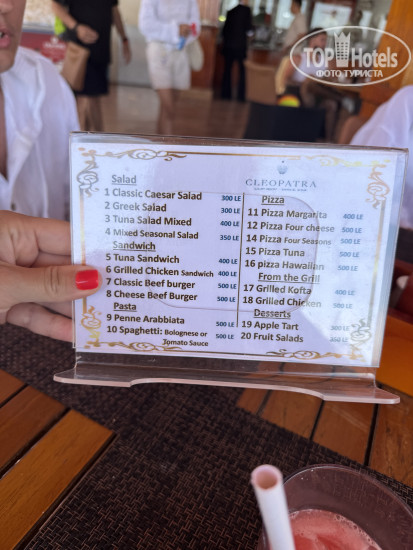 TOPHotels
ФОТО ТУРИСТА
Salad
1 Classic Caesar Salad 300 LE
2 Greek Salad 300 LE
3 Tuna Salad Mixed 400 LE
4 Mixed Seasonal Salad 350 LE
Sandwich
5 Tuna Sandwich 400 LE
6 Grilled Chicken Sandwich 400 LE
7 Classic Beef burger 500 LE
8 Cheese Beef Burger 500 LE
Pasta
9 Penne Arabbiata 500 LE
10 Spaghetti: Bolognese or 500 LE
Tomato Sauce
CLEOPATRA
Pizza
11 Pizza Margarita 400 LE
12 Pizza Four cheese 500 LE
14 Pizza Four Seasons 500 LE
15 Pizza Tuna 500 LE
16 pizza Hawaiian 500 LE
From the Grill
17 Grilled Kofta 400 LE
18 Grilled Chicken 500 LE
Desserts
19 Apple Tart 300 LE
20 Fruit Salads 350 LE